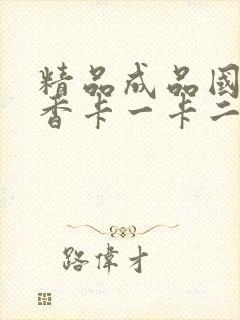 精品成品國
香卡一卡二
路偉才